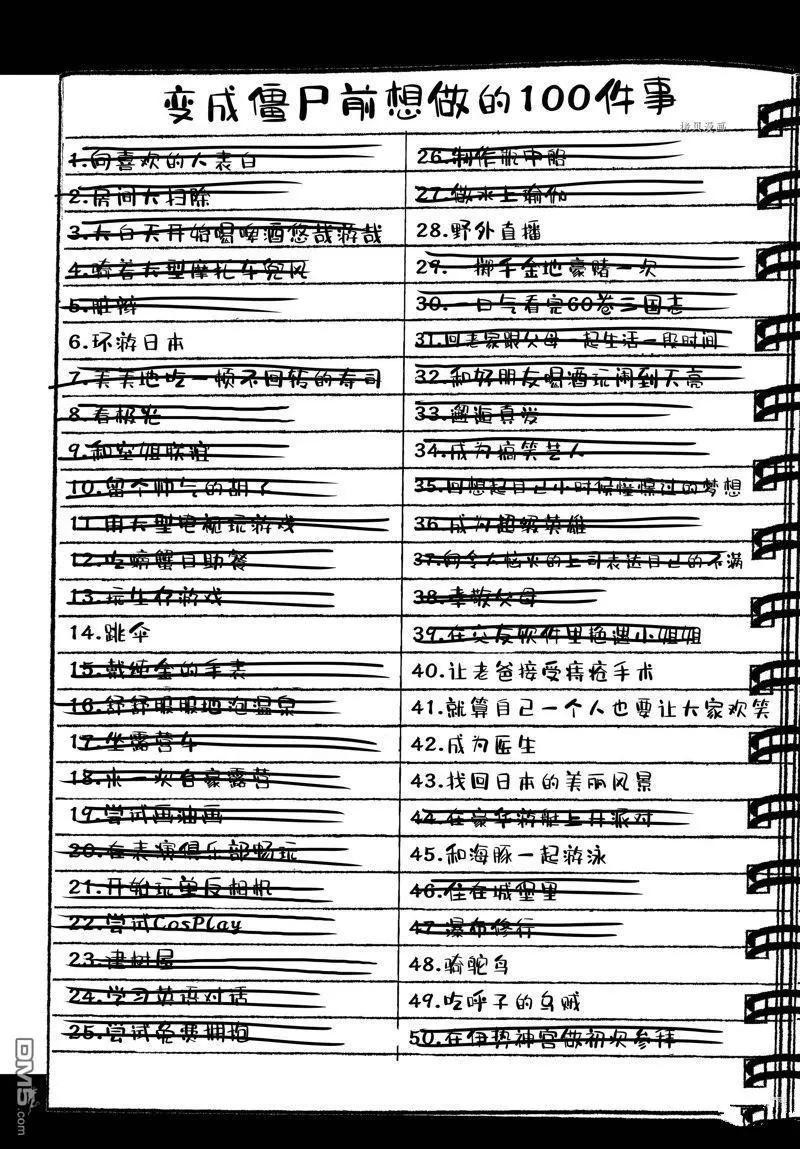 变成僵尸前想做的100件事
拷贝漫画
1.向喜欢的人表白
2.房间大扫除
3.大白天开始喝啤酒悠哉游哉
4.骑着大型摩托车兜风
5.脏辫
6.环游日本
7.美美地吃一顿不回转的寿司
8.看极光
9.和空姐联谊
10.留个帅气的胡子
11.用大型电视玩游戏
12.吃螃蟹自助餐
13.玩生存游戏
14.跳伞
15.戴纯金的手表
16.舒舒服服地泡温泉
17.坐露营车
18.来一次自豪露营
19.尝试画油画
20.在表演俱乐部畅玩
21.开始玩单反相机
22.尝试CosPlay
23.建树屋
24.学习英语对话
25.尝试免费拥抱
26.制作瓶中船
27.做水上瑜伽
28.野外直播
29.一掷千金地豪赌一次
30.一口气看完60卷三国志
31.回老家跟父母一起生活一段时间
32.和好朋友喝酒玩闹到天亮
33.邂逅真爱
34.成为搞笑艺人
35.回想起自己小时候憧憬过的梦想
36.成为超级英雄
37.向令人恼火的上司表达自己的不满
38.孝敬父母
39.在交友软件里艳遇小姐姐
40.让老爸接受痔疮手术
41.就算自己一个人也要让大家欢笑
42.成为医生
43.找回日本的美丽风景
44.在豪华游艇上开派对
45.和海豚一起游泳
46.住在城堡里
47.瀑布修行
48.骑鸵鸟
49.吃呼子的乌贼
50.在伊势神宫做初次参拜
DM5.com